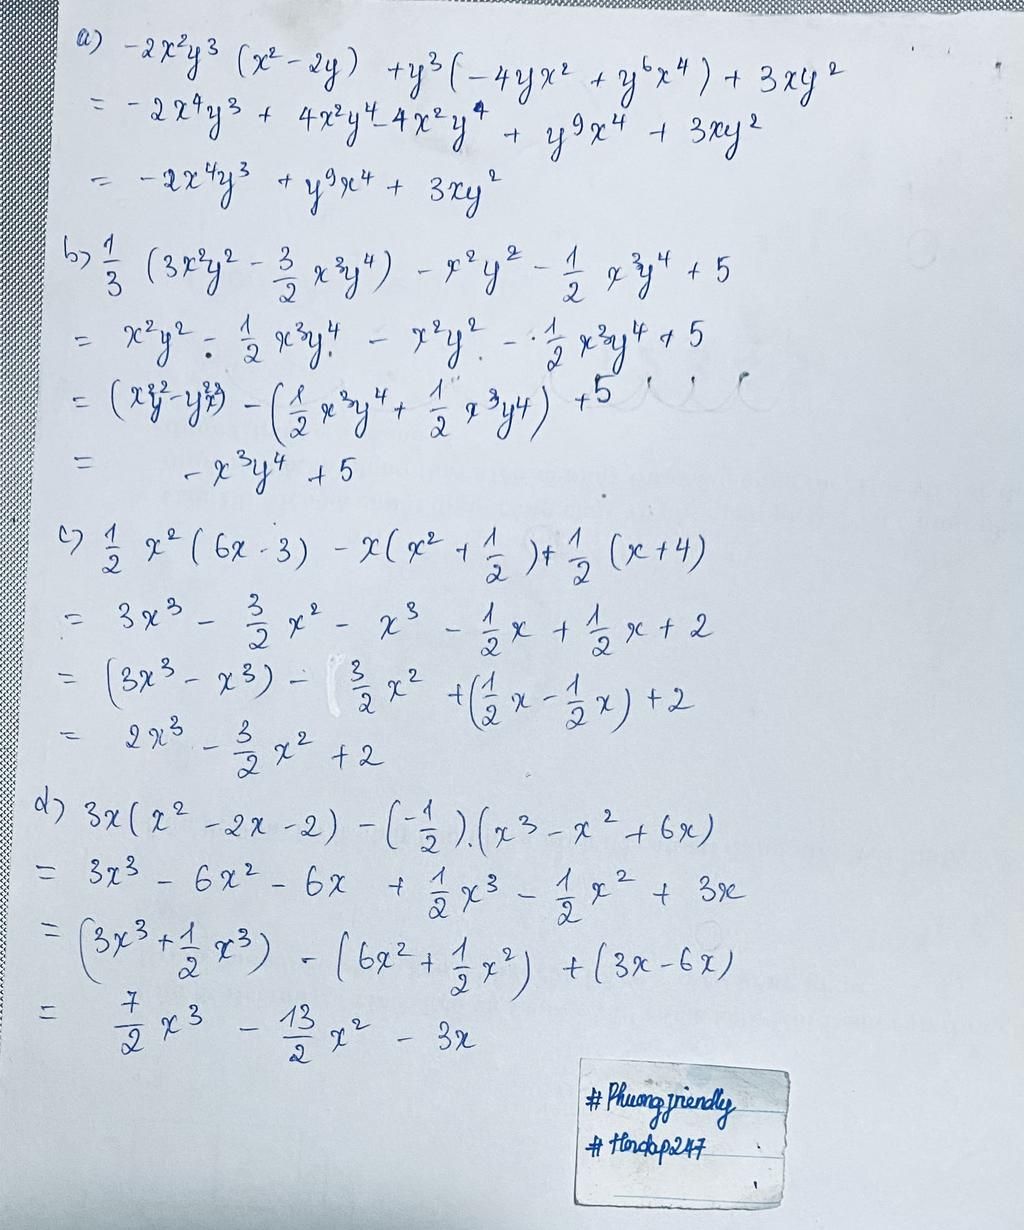 a) -2x²y³ (x² - 2y) + y³(-4yx² + y⁶x⁴) + 3xy²
= -2x⁴y³ + 4x²y⁴ - 4x²y⁴ + y⁹x⁴ + 3xy²
= -2x⁴y³ + y⁹x⁴ + 3xy²
b) 1/3 (3x²y² - 3/2 x³y⁴) - x²y² - 1/2 x³y⁴ + 5
= x²y² - 1/2 x³y⁴ - x²y² - 1/2 x³y⁴ + 5
= (x²y² - y²x²) - (1/2 x³y⁴ + 1/2 x³y⁴) + 5
= - x³y⁴ + 5
c) 1/2 x² (6x - 3) - x(x² + 1/2) + 1/2 (x + 4)
= 3x³ - 3/2 x² - x³ - 1/2 x + 1/2 x + 2
= (3x³ - x³) - 3/2 x² + (1/2 x - 1/2 x) + 2
= 2x³ - 3/2 x² + 2
d) 3x(x² - 2x - 2) - (-1/2).(x³ - x² + 6x)
= 3x³ - 6x² - 6x + 1/2 x³ - 1/2 x² + 3x
= (3x³ + 1/2 x³) - (6x² + 1/2 x²) + (3x - 6x)
= 7/2 x³ - 13/2 x² - 3x
# Phuongfriendly
# Hoidap247